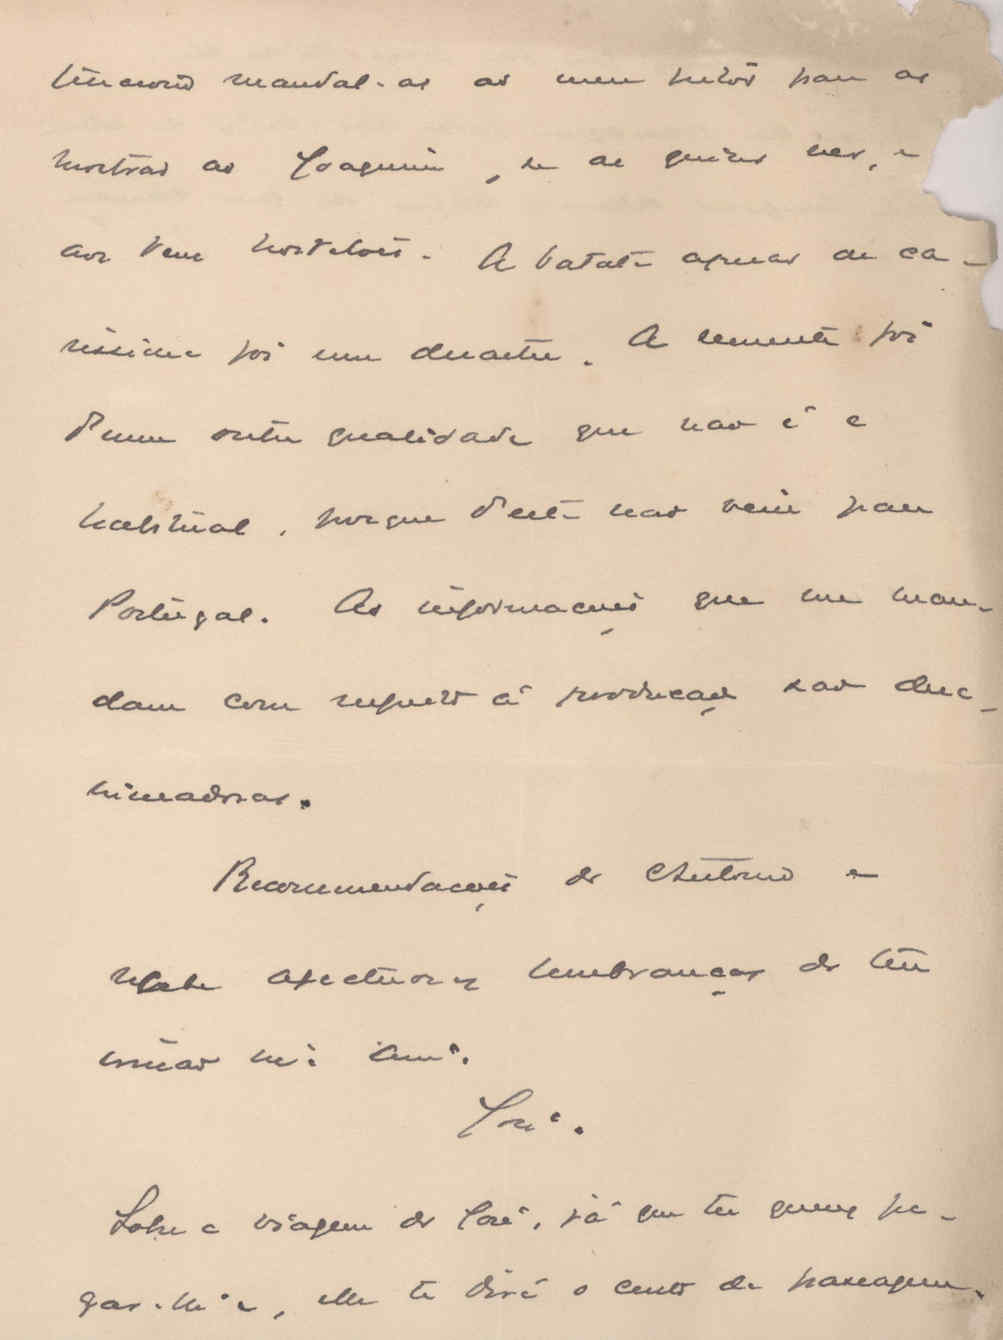 mandal-as ao meu para as
mostrar ao Joaquim, se as quizer ver, e
aos teus hortelões. A batata apesar de ca-
rissima foi um desastre. A semente foi
d'uma outra qualidade que não é a
habitual, porque d'esta não veiu para
Portugal. As informações que me man-
dam com respeito á producção são desa-
nimadoras.
Recommendações do Antonio e
recebe afectuosas lembranças do teu
irmão m.to am.o
José.
Sobre a viagem do José, já que tu queres pa-
gar-lh'a, elle te dirá o custo da passagem,